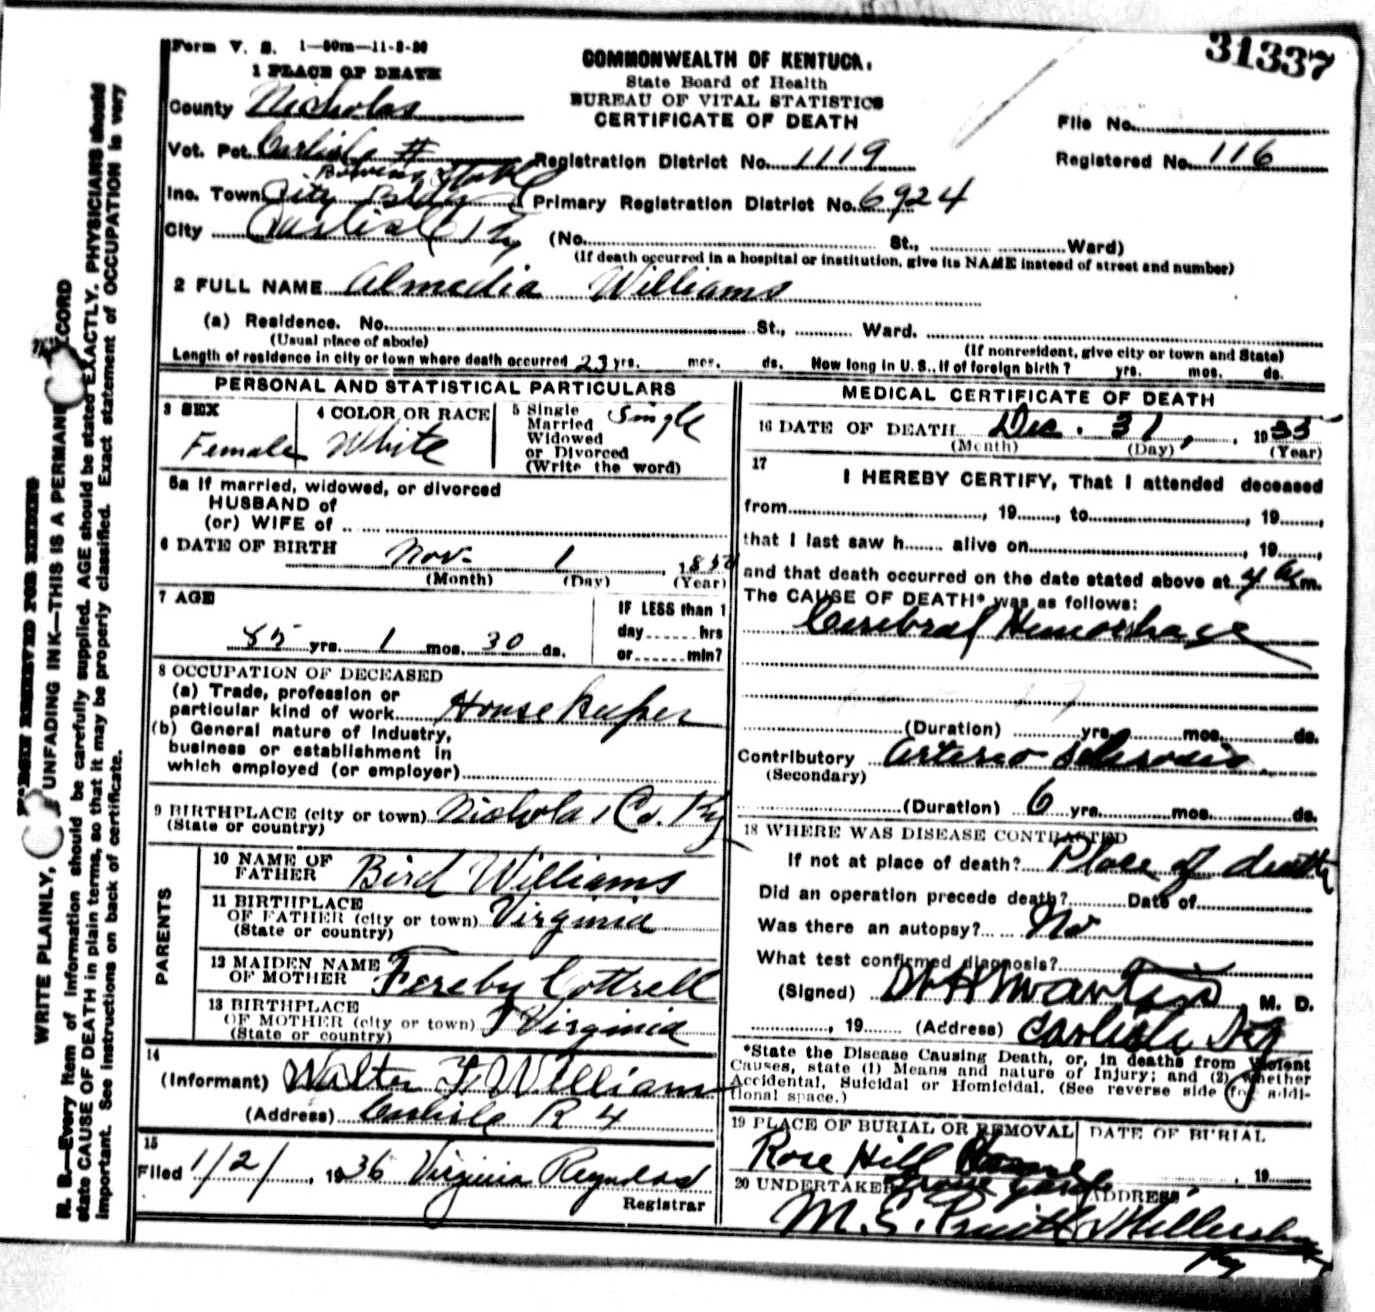 31337
Form V. S. 1—50m—11-3-30
COMMONWEALTH OF KENTUCK
State Board of Health
BUREAU OF VITAL STATISTICS
CERTIFICATE OF DEATH
1 PLACE OF DEATH
County Nicholas
File No.
Vot. Pct. Carlisle #
Registration District No. 1119
Registered No. 116
Inc. Town City Bldg
Primary Registration District No. 6924
City Carlisle Ky
(No. St., Ward)
(If death occurred in a hospital or institution, give its NAME instead of street and number)
2 FULL NAME Almedia Williams
(a) Residence. No. St., Ward.
(Usual place of abode) (If nonresident, give city or town and State)
Length of residence in city or town where death occurred 23 yrs. mos. ds. How long in U. S., if of foreign birth? yrs. mos. ds.
PERSONAL AND STATISTICAL PARTICULARS
3 SEX
Female
4 COLOR OR RACE
White
5 Single
Married
Widowed
or Divorced
(Write the word)
Single
5a If married, widowed, or divorced
HUSBAND of
(or) WIFE of
6 DATE OF BIRTH
Nov. 1, 1850
(Month) (Day) (Year)
7 AGE
85 yrs. 1 mos. 30 ds.
IF LESS than 1
day hrs
or min?
8 OCCUPATION OF DECEASED
(a) Trade, profession or
particular kind of work House keeper
(b) General nature of industry,
business or establishment in
which employed (or employer)
9 BIRTHPLACE (city or town) Nicholas Co. Ky
(State or country)
PARENTS
10 NAME OF
FATHER Bird Williams
11 BIRTHPLACE
OF FATHER (city or town) Virginia
(State or country)
12 MAIDEN NAME
OF MOTHER Fereby Cottrell
13 BIRTHPLACE
OF MOTHER (city or town) Virginia
(State or country)
14
(Informant) Walter F Williams
(Address) Carlisle R 4
15
Filed 1/2/, 1936 Virginia Reynolds
Registrar
MEDICAL CERTIFICATE OF DEATH
16 DATE OF DEATH Dec. 31, 1935
(Month) (Day) (Year)
17
I HEREBY CERTIFY, That I attended deceased
from , 19 , to , 19 ,
that I last saw h alive on , 19 ,
and that death occurred on the date stated above at 4 A.m.
The CAUSE OF DEATH* was as follows:
Cerebral Hemorrhage
(Duration) yrs. mos. ds.
Contributory Arterio Sclerosis
(Secondary)
(Duration) 6 yrs. mos. ds.
18 WHERE WAS DISEASE CONTRACTED
If not at place of death? Place of death
Did an operation precede death? Date of
Was there an autopsy? No
What test confirmed diagnosis?
(Signed) , M. D.
, 19 (Address) Carlisle Ky
*State the Disease Causing Death, or, in deaths from Violent
Causes, state (1) Means and nature of Injury; and (2) whether
Accidental, Suicidal or Homicidal. (See reverse side for addi-
tional space.)
19 PLACE OF BURIAL OR REMOVAL
DATE OF BURIAL
Rose Hill
, 19
20 UNDERTAKER
ADDRESS
M. E. Pruitt Millersburg
Ky
WRITE PLAINLY, UNFADING INK—THIS IS A PERMANENT RECORD
N. B.—Every item of information should be carefully supplied. AGE should be stated EXACTLY. PHYSICIANS should
state CAUSE OF DEATH in plain terms, so that it may be properly classified. Exact statement of OCCUPATION is very
important. See instructions on back of certificate.